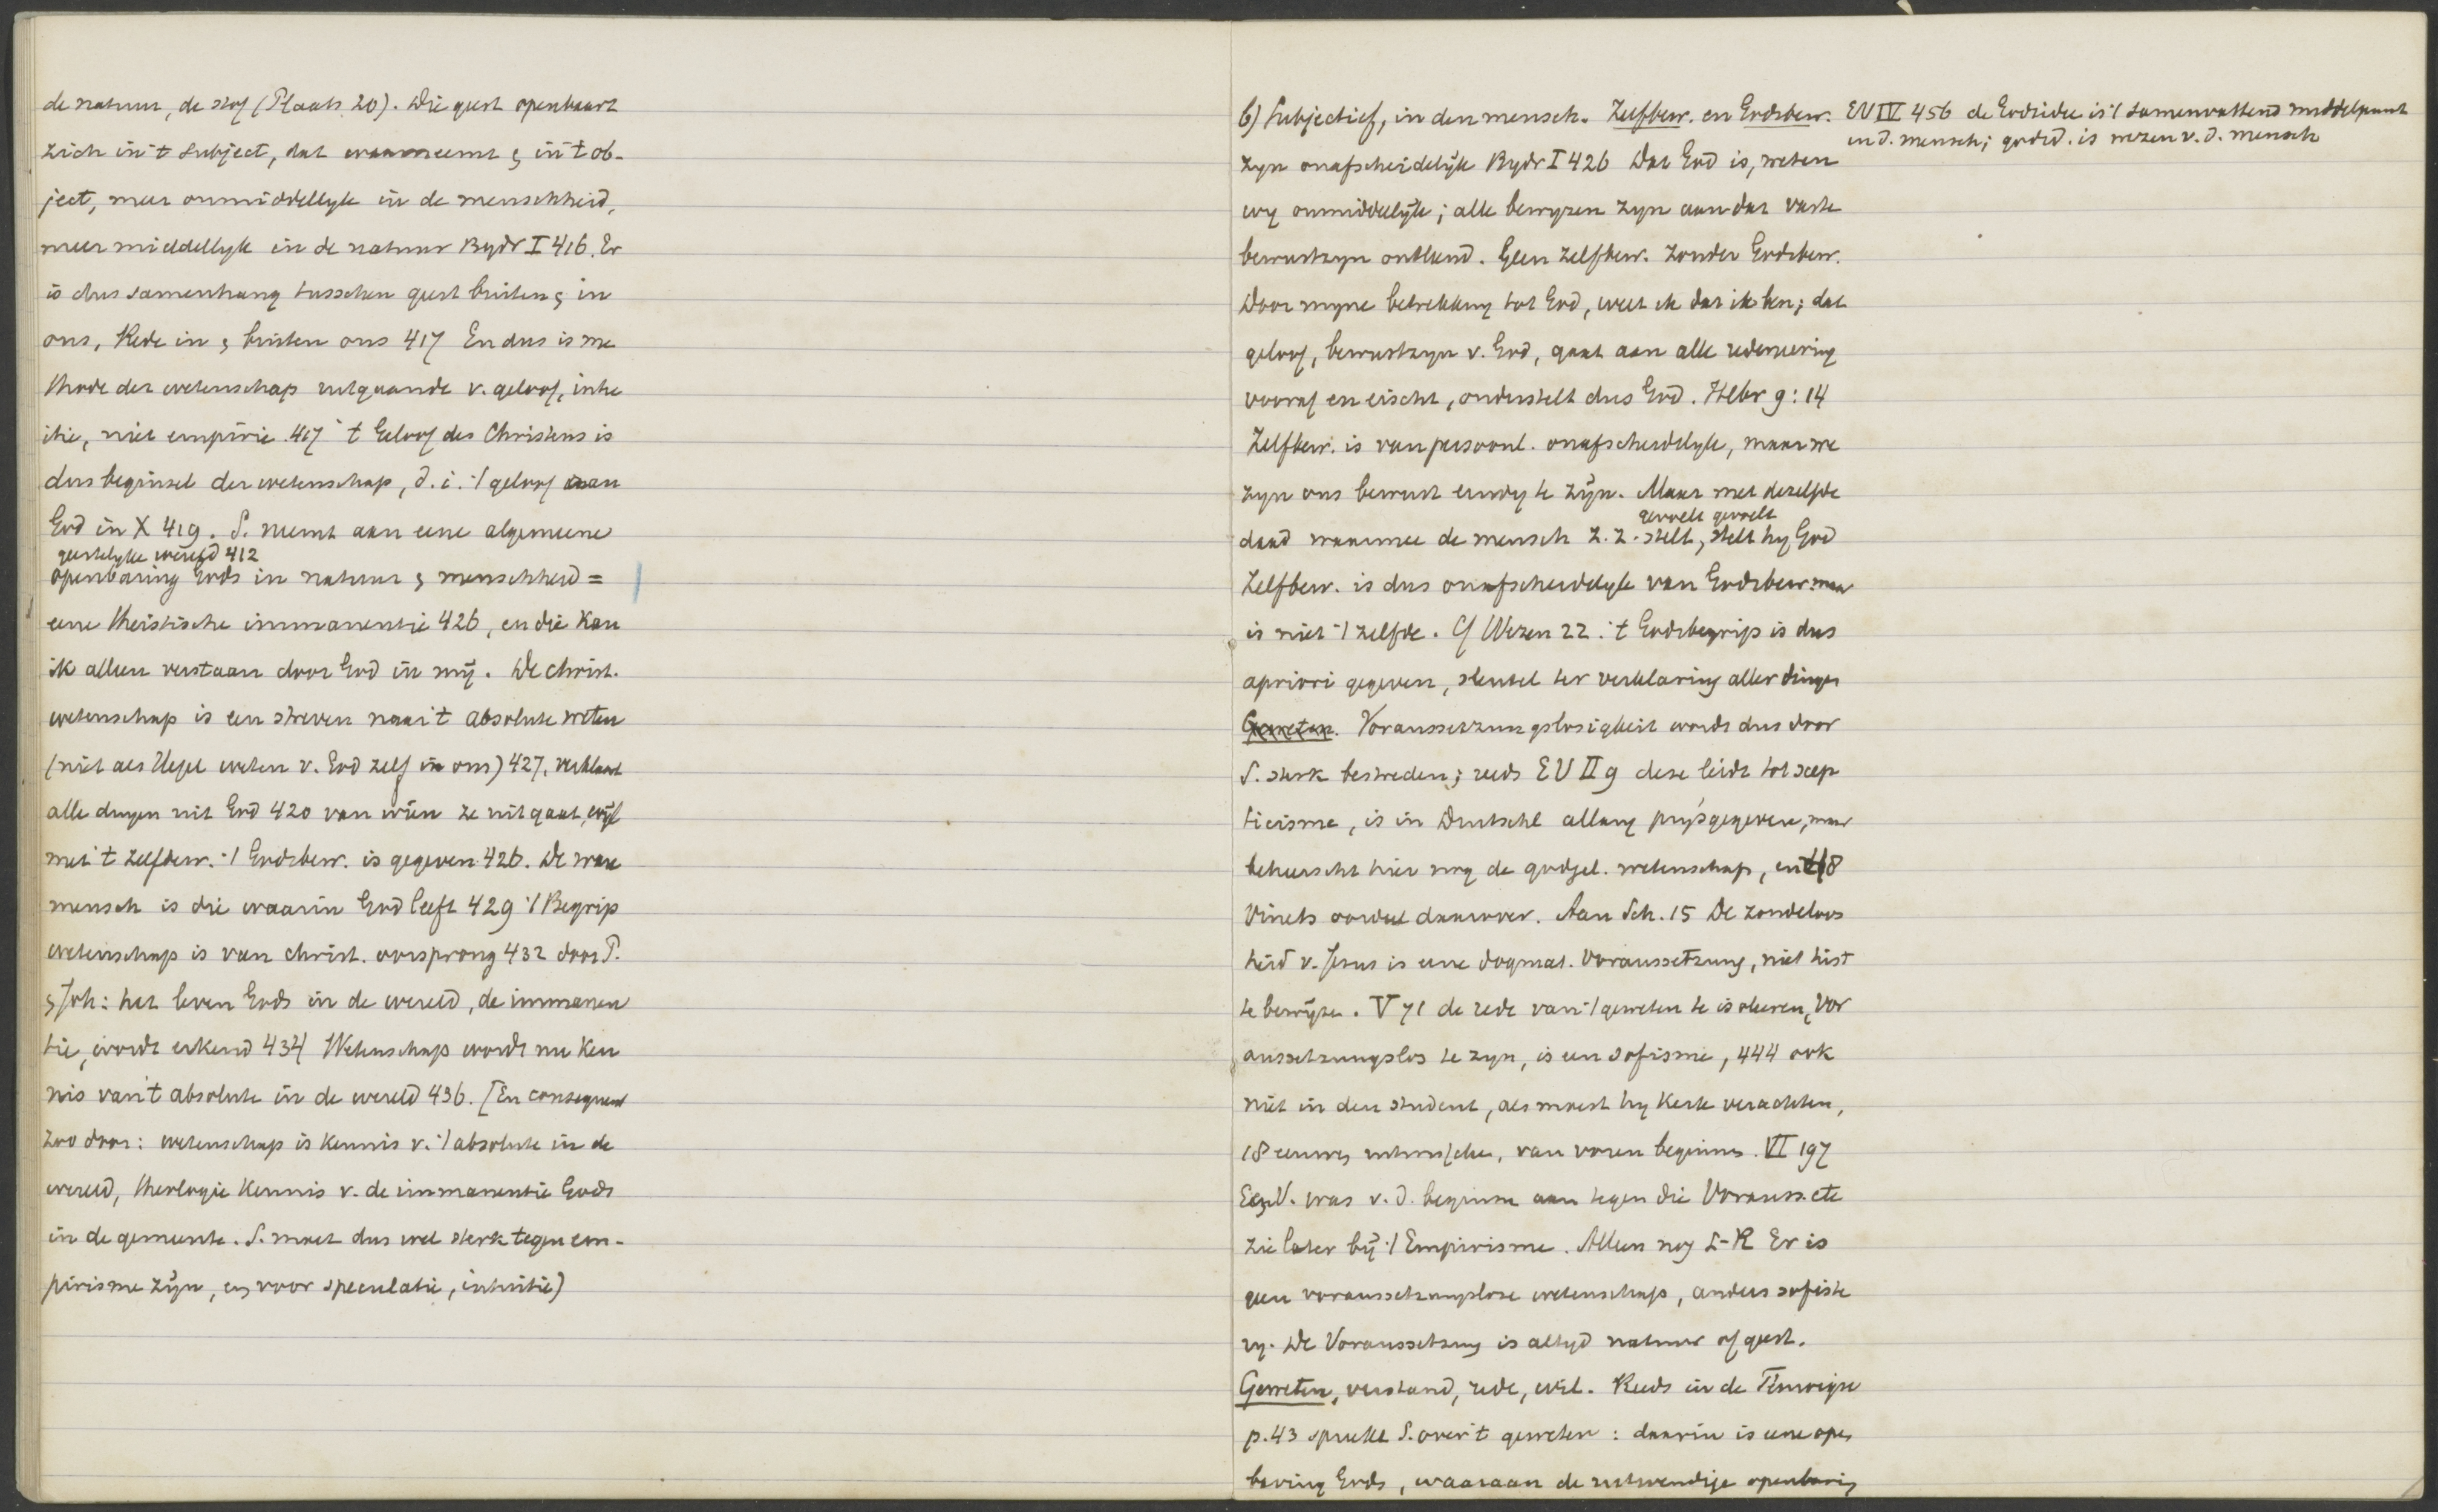 de natuur, de stof (Plaats 20). Die geest openbaart
zich in 't subject, dat waarneemt & in 't ob-
ject, meer onmiddellijk in de menschheid,
meer middellyk in de natuur Bydr I 416. Er
is dus samenhang tusschen geest buiten & in
ons, Rede in & buiten ons 417 En dus is me
thode der wetenschap uitgaande v. geloof, intu
itie, niet empirie 417 't Geloof des Christens is
dus beginsel der wetenschap, d.i. 't geloof aan
God in X 419. S. neemt aan eene algemeene
geestelyke wereld 412
openbaring Gods in natuur & menschheid =
eene theistische immanentie 426, en die kan
ik alleen verstaan door God in mij. De christ.
wetenschap is een streven naar 't absolute weten
(niet als Hegel weten v. God zelf in ons) 427, verklaart
alle dingen uit God 420 van wien ze uitgaat, wijl
met 't zelfbew. 't Godsbew. is gegeven 426. De ware
mensch is die waarin God leeft 429 't Begrip
wetenschap is van christ. oorsprong 432 door P.
& Joh: het leven Gods in de wereld, de immanen
tie, wordt erkend 434 Wetenschap wordt nu ken
nis van 't absolute in de wereld 436. [En consequent
zoo door: wetenschap is kennis v. 't absolute in de
wereld, theologie kennis v. de immanentie Gods
in de gemeente. S. moet dus wel sterk tegen em-
pirisme zijn, en voor speculatie, intuitie)
b) Subjectief, in den mensch. Zelfbew. en Godsbew.
zyn onafscheidelijk Bydr I 426 Dat God is, weten
wy onmiddelijk; alle bewyzen zyn aan dat vaste
bewustzyn ontleend. Geen zelfbew. zonder Godsbew.
Door myne betrekking tot God, weet ik dat ik ben; dat
geloof, bewustzyn v. God, gaat aan alle redeneering
vooraf en eischt, onderstelt dus God. Hebr 9:14
Zelfbew. is van persoonl. onafscheidelyk, maar we
zyn ons bewust eindig te zijn. Maar met dezelfde
gevoelt gevoelt
daad waarmee de mensch z.z. stelt, stelt hy God
Zelfbew. is dus onafscheidelyk van Godsbew. maar
is niet 't zelfde. Cf Wezen 22. 't Godsbegrip is dus
apriori gegeven, sleutel ter verklaring aller dingen
Geweten. Voraussetzungslosigkeit wordt dus door
S. sterk bestreden; reeds EV II 9 deze leidt tot scep
ticisme, is in Duitschl allang prijsgegeven, maar
beheerscht hier nog de godgel. wetenschap, en 418
Vinets oordeel daarover. Aan Sch. 15 De zondeloos
heid v. Jesus is eene dogmat. Voraussetzung, niet hist
te bewijzen. V 71 de rede van 't geweten te isoleeren, Vor
aussetzungslos te zyn, is een sofisme, 444 ook
niet in den student, als moest hy Kerk verachten,
18 eeuwen uitwisschen, van voren beginnen. VI 197
E&V. was v.d. beginne aan tegen die Vorauss. etc
zie later bij 't Empirisme. Alleen nog L-R Er is
geen voraussetzungslose wetenschap, anders sofiste
ry. De Voraussetzung is altyd natuur of geest.
Geweten, verstand, rede, wil. Reeds in de
p.43 spreekt S. over 't geweten: daarin is eene open
baring Gods, waaraan de uitwendige openbaring
EV IV 456 de Godsidee is 't samenvattend middelpunt
in d. mensch; godsd. is wezen v.d. mensch